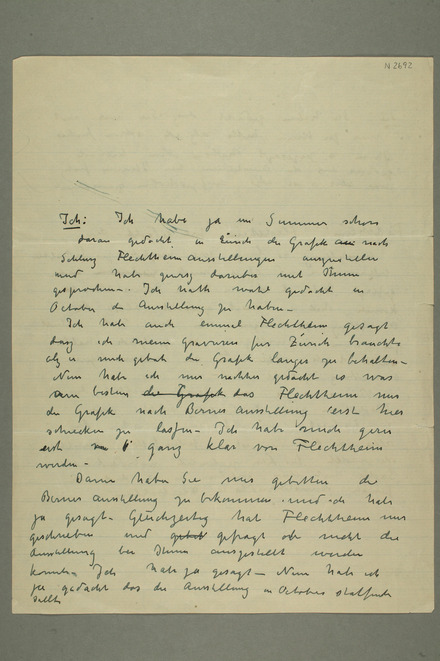 N 2692
Ich: Ich habe ja im Summer schon
daran gedacht, in Zürich die Grafik nach
Flechtheim ausstellungen auszustellen
und hab darüber mit Ihnen
gesprochen. Ich hatte wohl gedacht in
October die Ausstellung zu haben.
Ich hab auch einmal Flechtheim gesagt
das ich meine Gravuren für Zürich brauchte
als er mich gebeten die Grafik langer zu behalten.
Nun hab ich mir nachher gedacht es was
am besten die Grafik das Flechtheim mir
die Grafik nach Berner Ausstellung erst hier
schicken zu lassen. Ich habe mich gern
erst ganz klar von Flechtheim
werden.
Dann haben Sie mir gebeten die
Berner Ausstellung zu bekommen und ich hab
ja gesagt. Gleichzeitig hat Flechtheim mir
geschrieben und gefragt ob nicht die
Ausstellung bei Ihnen ausgestellt werden
konnte. Ich hab ja gesagt. Nun hab ich
ja gedacht das die Ausstellung in October statfinden
sollte